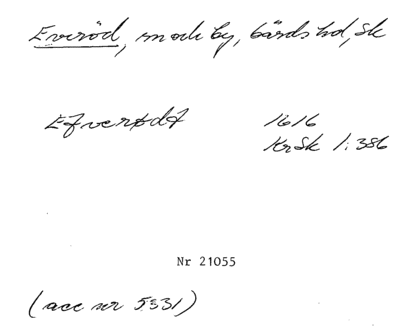 Everöd, sn och by, Gärds hd, Sk
Efverødt 1616
KrSk 1:386
Nr 21055
(acc nr 5331)